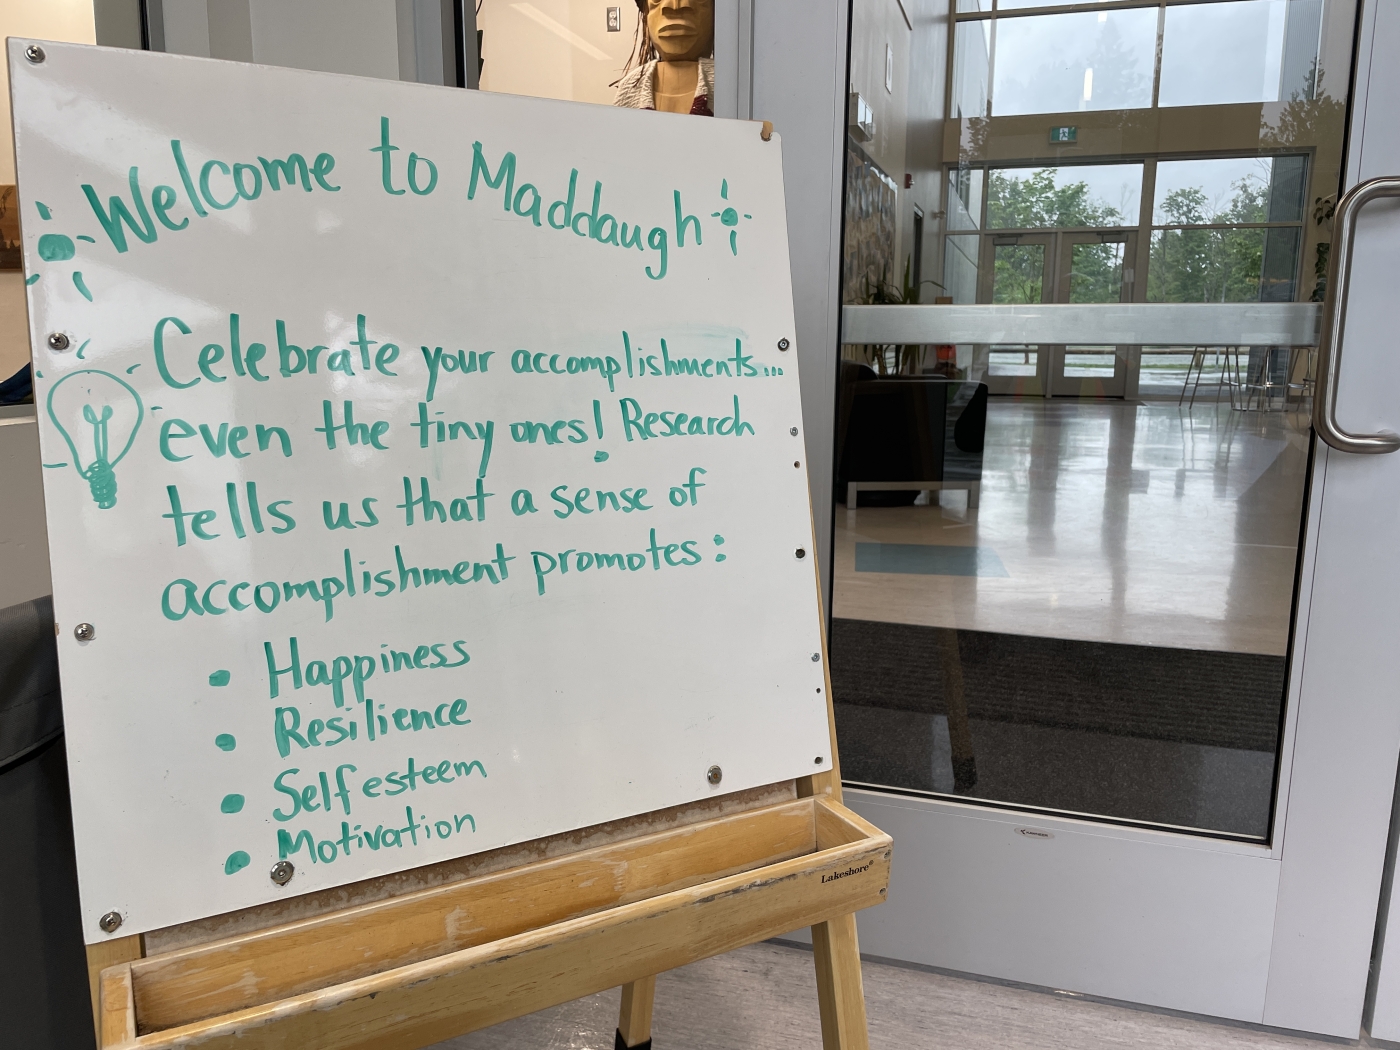 Welcome to Maddaugh
Celebrate your accomplishments...
even the tiny ones! Research
tells us that a sense of
accomplishment promotes:
• Happiness
• Resilience
• Self esteem
• Motivation
Lakeshore®